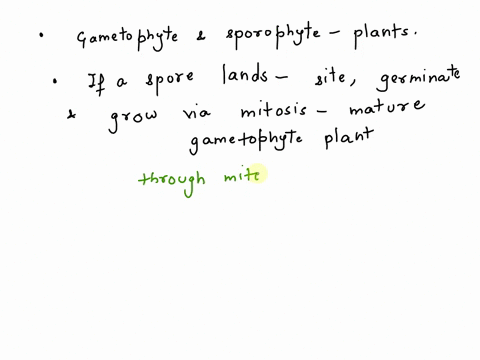 • Gametophyte & sporophyte - plants.
• If a spore lands - site, germinate
& grow via mitosis - mature
gametophyte plant
through mito